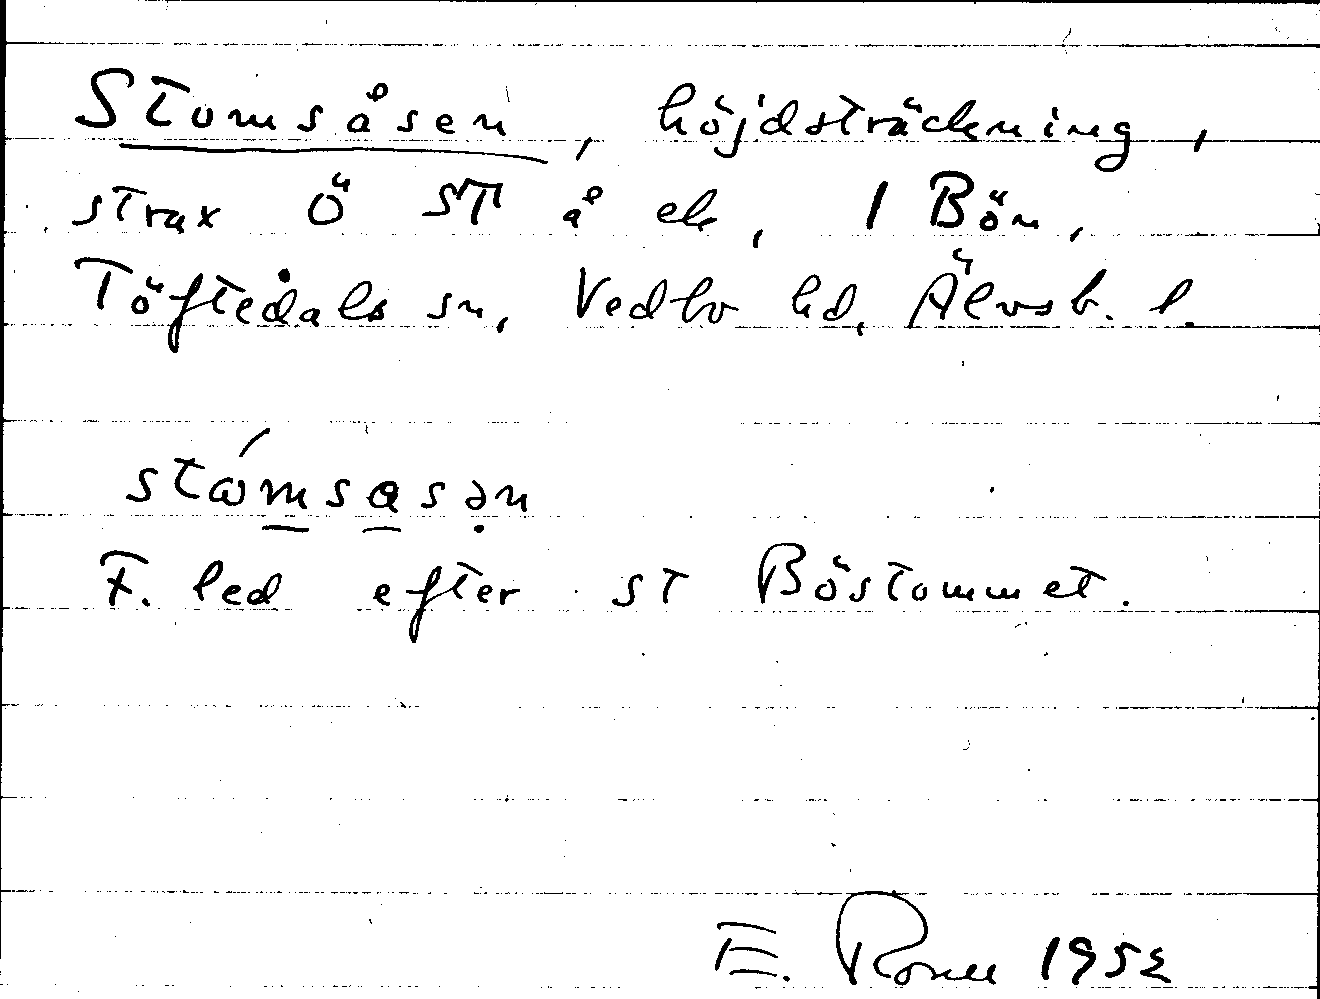 Stomsåsen, höjdsträckning,
strax Ö ST å ek, 1 Bön,
Töftedals sn, Vedbo hd, Älvsb. l.
stɷ́msasən
F. led efter st Böstommet.
E. 1952